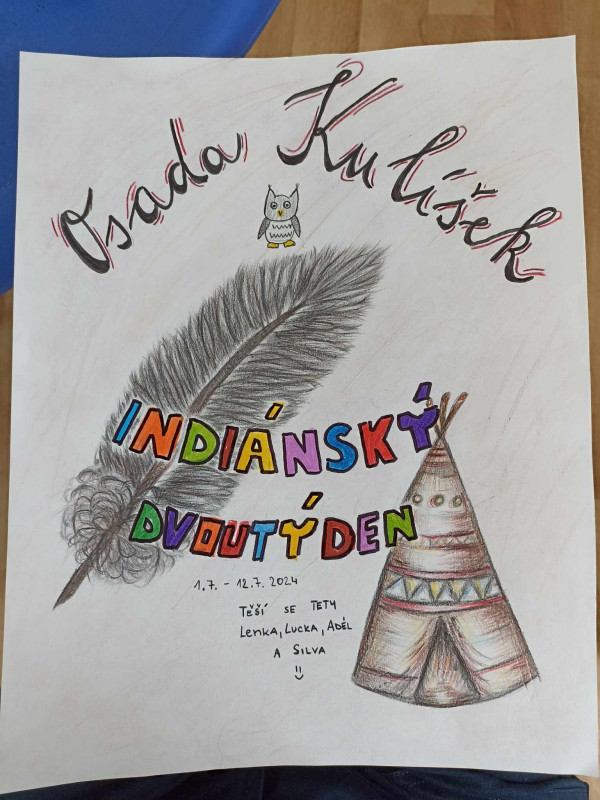 Osada Kulíšek
INDIÁNSKÝ
DVOUTÝDEN
1.7. - 12.7. 2024
TěŠÍ SE TETY
Lenka, Lucka, Aděl
A SILVA